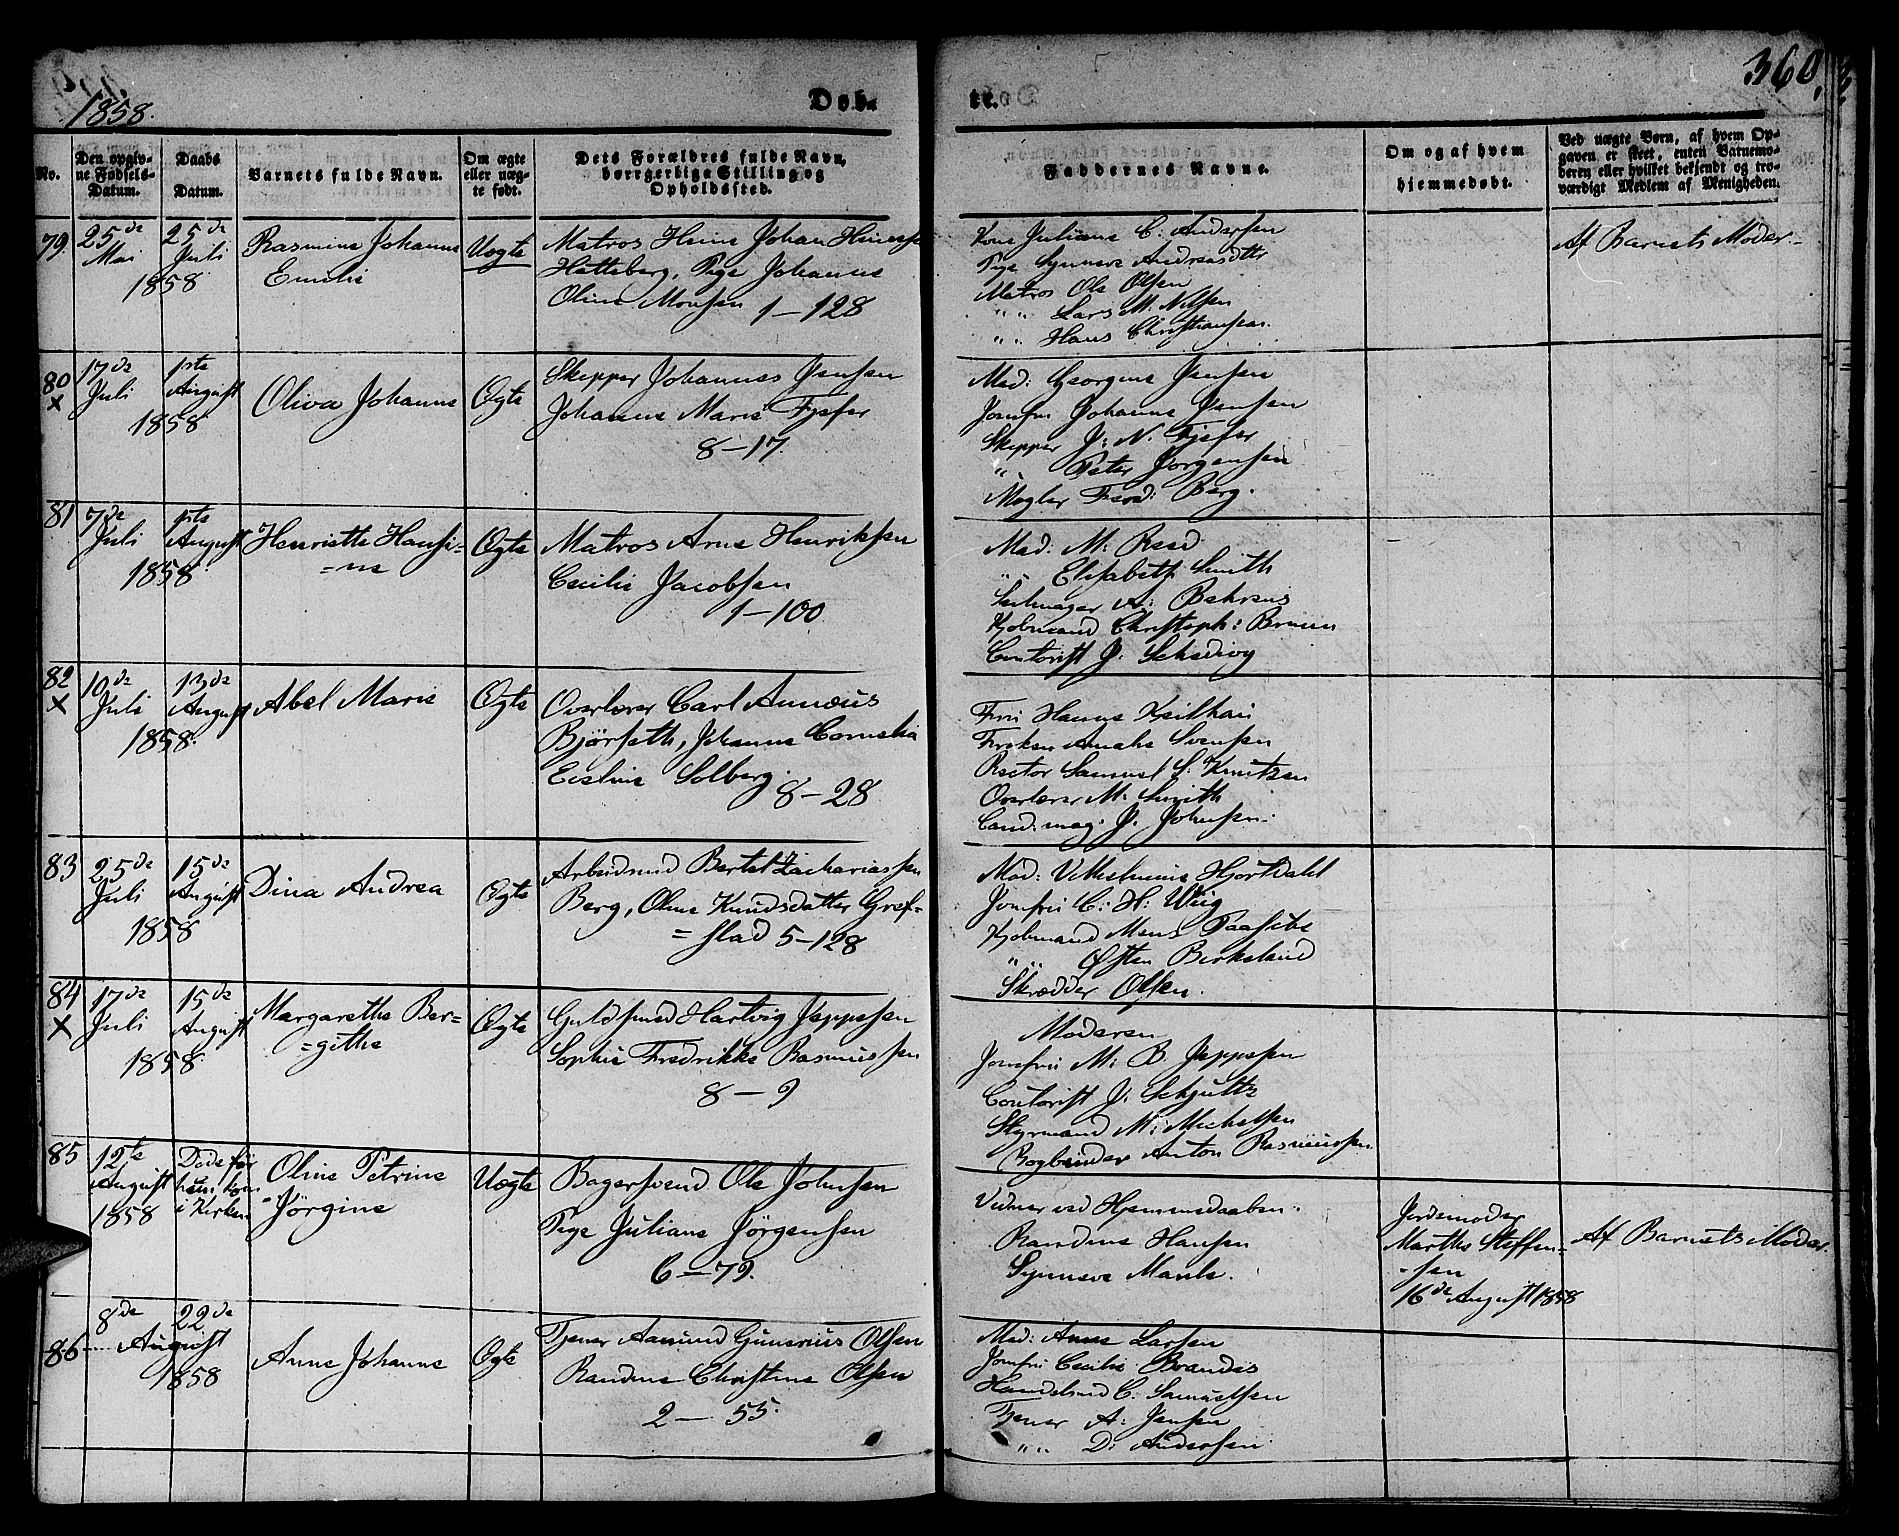 1858.
Døb-
te.
360.
No.
Den opgiv-
ne Fødsels-
Datum.
Daabs
Datum.
Barnets fulde Navn.
Om ægte
eller uæg-
te født.
Dets Forældres fulde Navn,
borgerlige Stilling og
Opholdssted.
Faddernes Navne.
Om og af hvem
hjemmedøbt.
Ved uægte Børn, af hvem Op-
gaven er skeet, enten Barnemo-
deren eller hvilket bekjendt og tro-
værdigt Medlem af Menigheden.
79.
25de
Mai
25de
Juli
1858
Rasmine Johanne
Emilie
Uægte
Matros Heine Johan Heinesen
Hatteberg, Pige Johanne
Oline Monsen 1-128
Kone Juliane C. Andersen
Pige Synneve Andreasdtter
Matros Ole Olsen
" " Lars M. Nilsen
" " Hans Christiansen.
Af Barnets Moder-
80
X
17de
Juli
1ste
August
1858
Oliva Johanne
Ægte
Skipper Johannes Jensen
Johanne Marie Fjeser
8-17.
Mad: Georgine Jensen
Jomfru Johanne Jensen
Skipper J: N. Fjeser
" Peter Jörgensen
Mægler Ferd: Berg.
81
7de
Juli
1ste
August
1858
Henriette Hansi=
=ne
Ægte
Matros Arne Henriksen
Cecilie Jacobsen
1-100
Mad. M: Reed
" Elisabeth Smith
Seilmager A: Behrens
Kjøbmand Christoph: Bruun
Contorist J. Schediog
82
X
10de
Juli
13de
August
1858.
Abel Marie
Ægte
Overlærer Carl Annæus
Bjørseth, Johanne Cornelia
Eveline Solberg. 8-28
Fru Hanne Keilhau
Frøken Amalie Svensen
Rector Samuel S. Knutzen
Overlærer M. Smith
Cand. mag. J. Johnsen.
83
25de
Juli
15de
August
1858
Dina Andrea
Ægte
Arbeidsmd Bertel Zachariassen
Berg, Oline Knudsdatter Gref=
=stad 5-128
Mad: Vilhelmine Hjortdahl
Jomfru C: H: Wiig
Kjøbmand Mons Taasebe
" " Østen Birkeland
Skrædder Olsen.
84
X
17de
Juli
15de
August
1858
Margarethe Ber=
=githe
Ægte
Guldsmed Hartvig Jeppesen
Sophie Fredrikke Rasmussen
8-9
Moderen
Jomfru M: B. Jeppesen
Contorist J. Schjultz
Styrmand M: Michelsen
Bogbinder Anton Rasmussen
85
12te
August
1858
Døde før
hun kom
i Kirken
Oline Petrine
Jörgine
Uægte
Bagersvend Ole Johnsen
Pige Juliane Jörgensen
6-79.
Vidner ved Hjemmedaaben.
Randine Hansen
Synneve Manle.
Jordemoder
Marthe Steffen-
-sen
16de August 1858
Af Barnets Moder.
86
8de
22de
August
1858
Anne Johanne
Ægte
Tjener Aanund Gunerius Olsen
Randine Christine Olsen
2-55.
Mad: Anne Larsen
Jomfru Cecilie Brandis
Handelsmd C: Samuelsen
Tjener A: Jensen
" " D: Andersen.